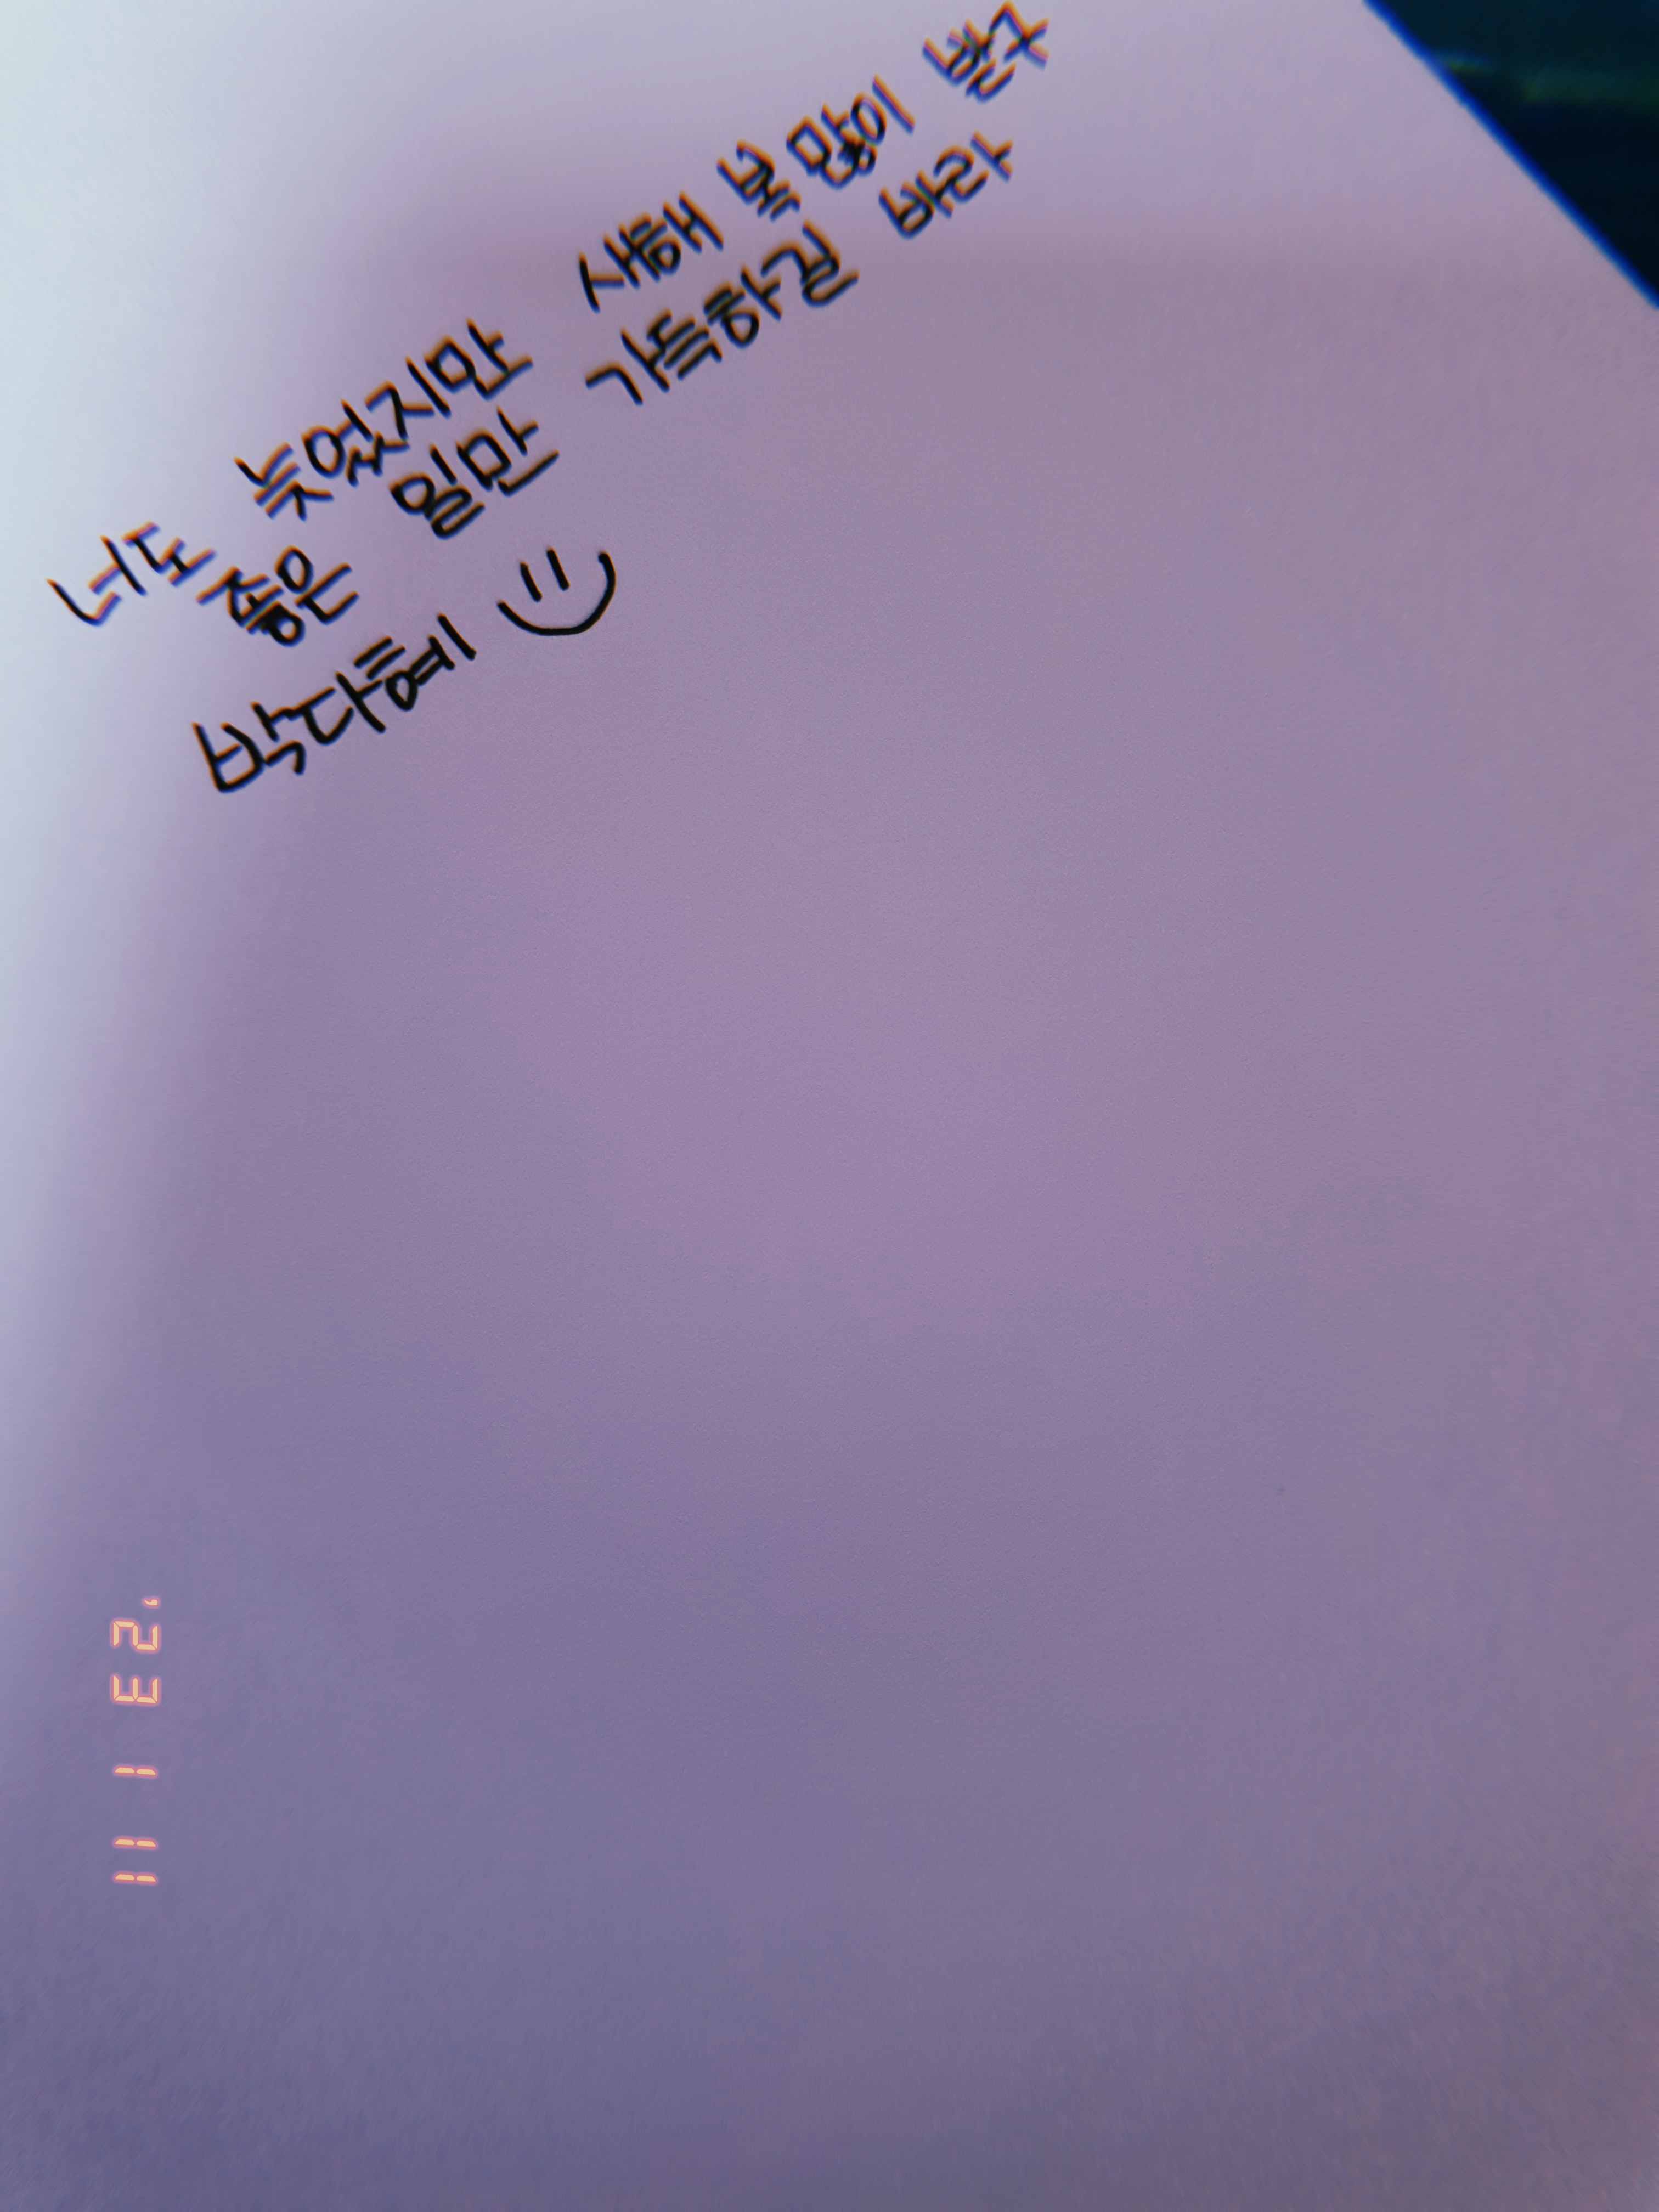 너도 늦었지만 새해 복 많이 받구
좋은 일만 가득하길 바라
박다혜 :)
'23 1 11